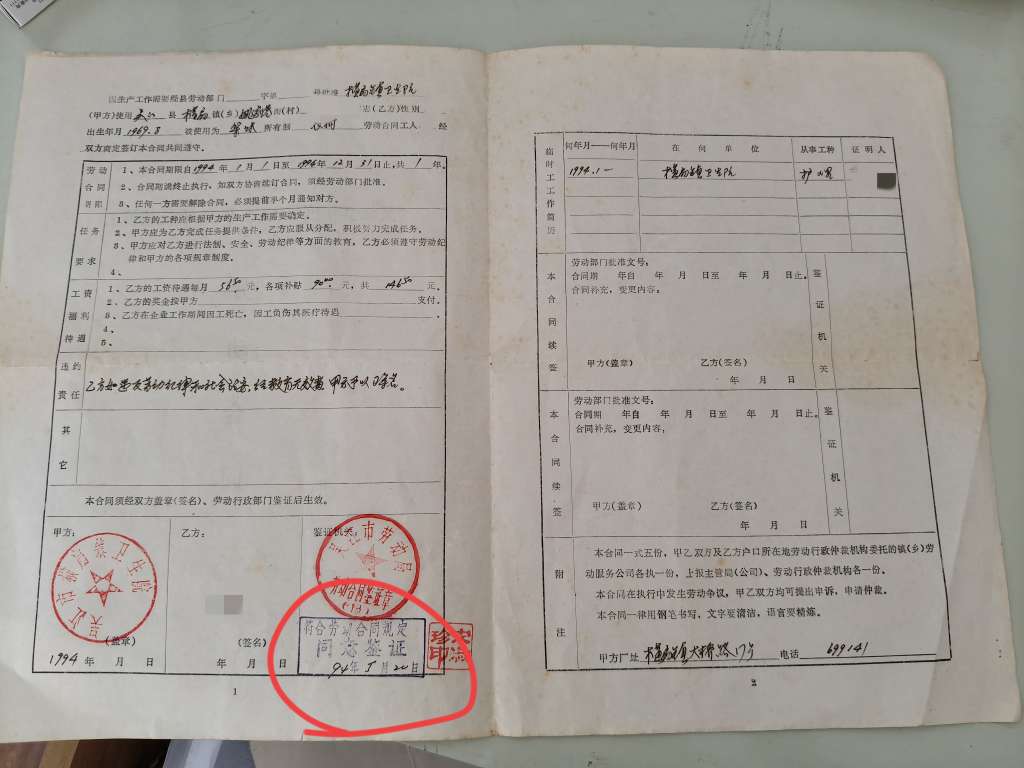 因生产工作需要经县劳动部门 字第 号批准 横扇镇卫生院
(甲方)使用吴江县横扇镇(乡) 街(村) 志(乙方)性别
出生年月1969.8 被使用为 所有制 劳动合同工人。经
双方商定签订本合同共同遵守。
劳动合同期限
1、本合同期限自1994年1月1日至1994年12月31日止,共1年。
2、合同期满终止执行,如双方协商续订合同,须经劳动部门批准。
3、任何一方需要解除合同,必须提前半个月通知对方。
任务要求
1、乙方的工种应根据甲方的生产工作需要确定。
2、甲方应为乙方完成任务提供条件,乙方应服从分配,积极努力完成任务。
3、甲方应对乙方进行法制、安全、劳动纪律等方面的教育,乙方必须遵守劳动纪
律和甲方的各项规章制度。
4、
工资福利待遇
1、乙方的工资待遇每月56.50元,各项补贴90.00元,共146.50元。
2、乙方的奖金按甲方 支付。
3、乙方在企业工作期间因工死亡,因工负伤其医疗待遇 。
4、
5、
违约责任
乙方如违反劳动纪律和社会治安,经教育无效者,甲方予以除名。
其它
本合同须经双方盖章(签名)、劳动行政部门鉴证后生效。
甲方:
乙方:
鉴证机关:
吴江市横扇镇卫生院
吴江市劳动局
劳动合同鉴证章
(19)
(盖章)
(签名)
1994年 月 日
年 月 日
符合劳动合同规定
同意鉴证
94年5月20日
1
临时工工作简历
何年月——何年月
在何单位
从事工种
证明人
1994.1—
横扇镇卫生院
护理员
本合同续签
劳动部门批准文号:
合同期 年自 年 月 日至 年 月 日止。
合同补充,变更内容:
甲方(盖章) 乙方(签名)
年 月 日
鉴证机关
本合同续签
劳动部门批准文号:
合同期 年自 年 月 日至 年 月 日止。
合同补充,变更内容:
甲方(盖章) 乙方(签名)
年 月 日
鉴证机关
附注
本合同一式五份,甲乙双方及乙方户口所在地劳动行政仲裁机构委托的镇(乡)劳
动服务公司各执一份,上报主管局(公司)、劳动行政仲裁机构各一份。
本合同在执行中发生劳动争议,甲乙双方均可提出申诉,申请仲裁。
本合同一律用钢笔书写,文字要清洁,语言要精炼。
甲方厂址 横扇镇大桥路17号 电话 699141
2